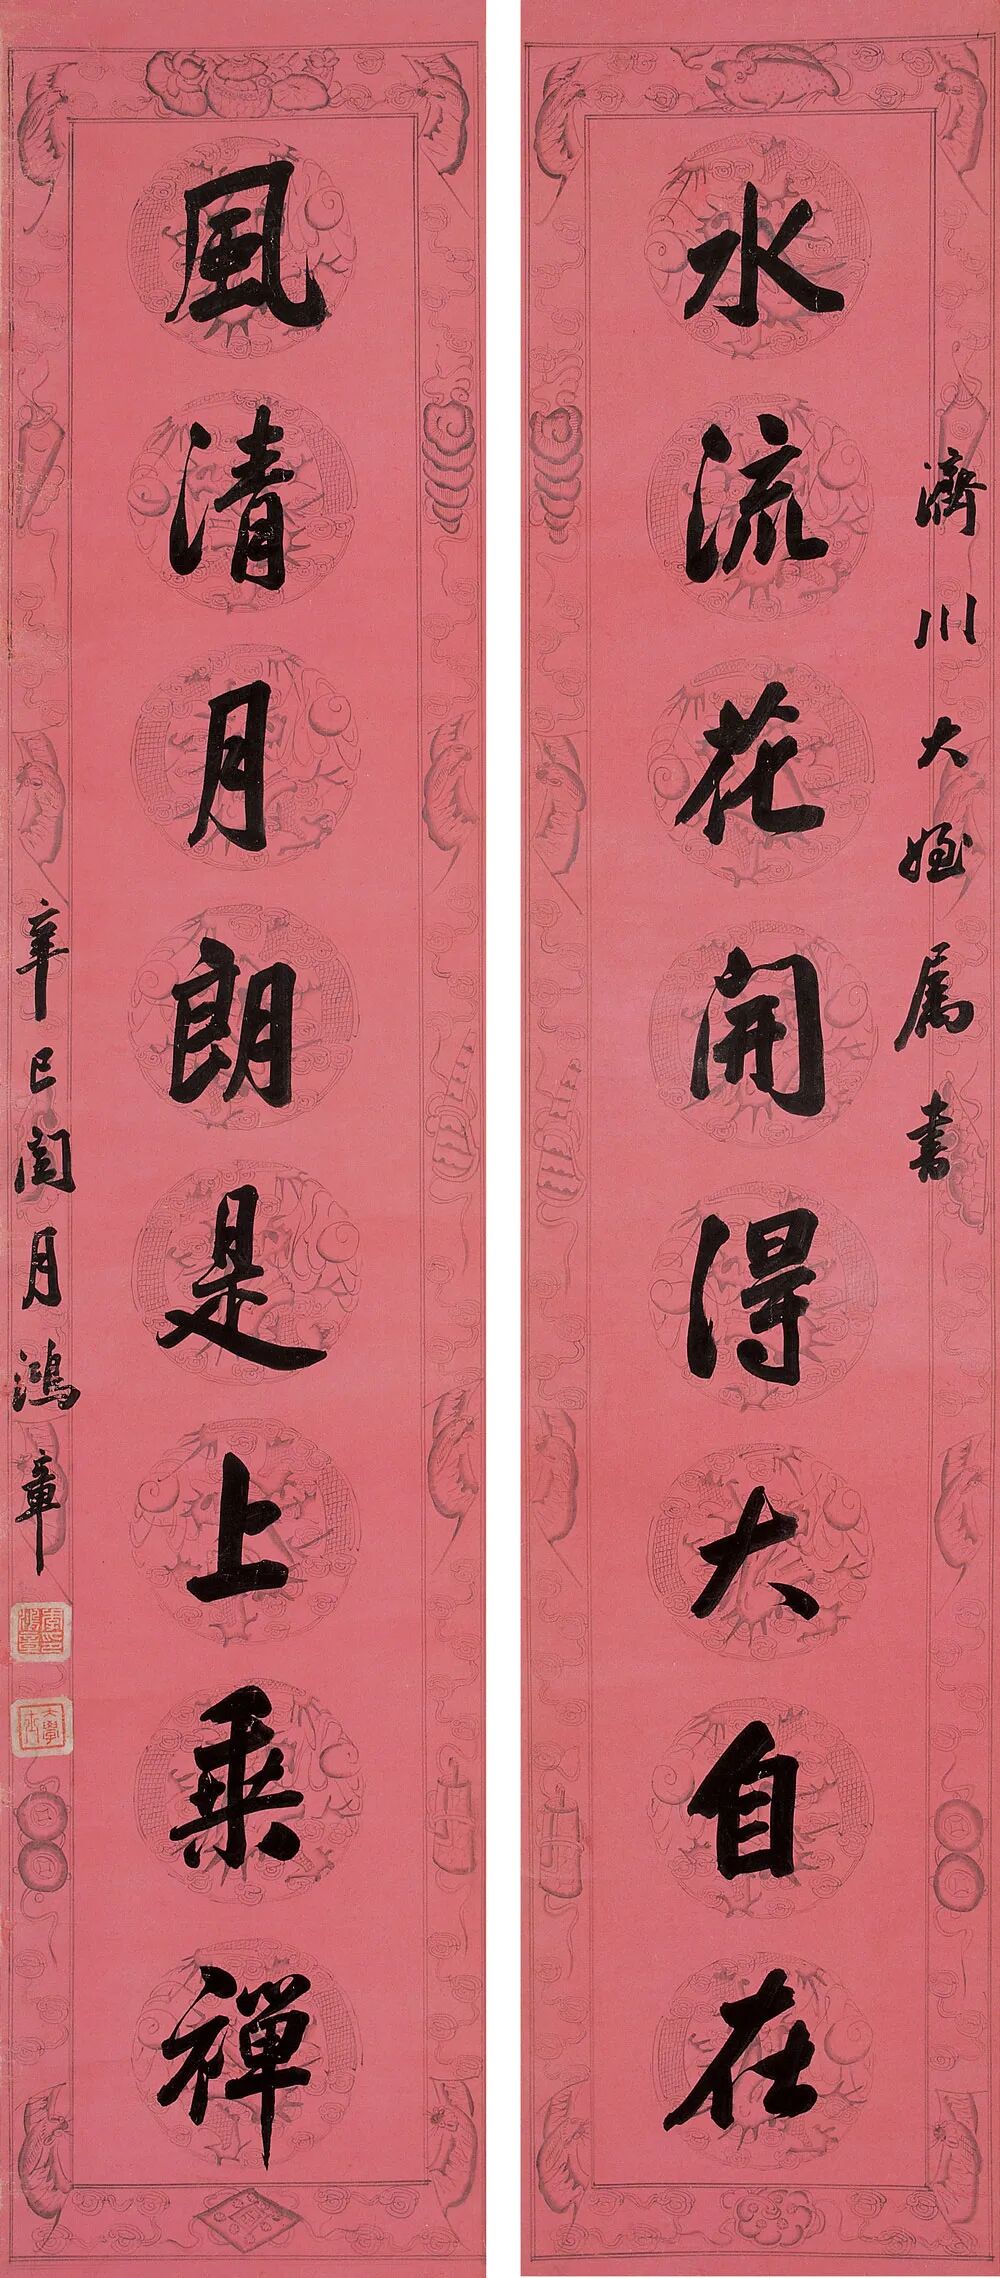 濟川大姪屬書
水流花開得大自在
風清月朗是上乘禪
辛巳閏月鴻章
李鴻章印
大學士